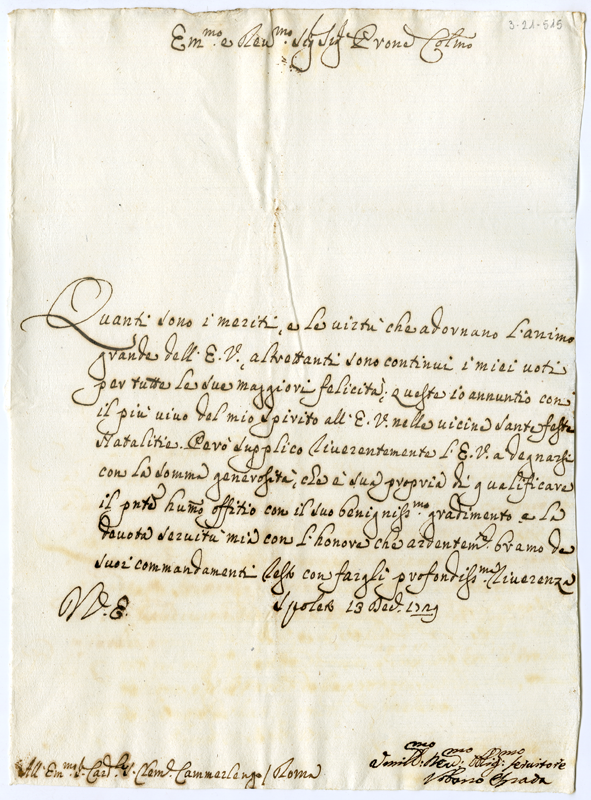 3-21-515
Em.mo e Reu.mo Sig Sig P̃rone Col.mo
Quanti sono i meriti, e le virtù che adornano l'animo
grande dell'E.V., altrettanti sono continui i miei voti
per tutte le sue maggiori felicità; queste io annuntio con
il più vivo del mio spirito all'E.V. nelle vicine sante feste
Natalitie. Però supplico riverentemente l'E.V. a degnarsi
con la somma generosità, che è sua propria di qualificare
il pnte hum̃o offitio con il suo benigniss.mo gradimento e la
devota servitù mia con l'honore che ardentem.te bramo de
suoi commandamenti e resto con fargli profondiss.ma riverenza
D.V.E. Spoleto 13 Dec. 1721
All'Em.mo S. Card.le S. Clem.te Cammerlengo / Roma
Deuo.mo Obl.mo seruitore
Spada